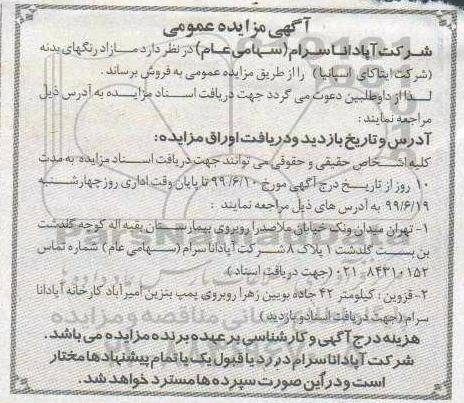 آگهی مزایده عمومی
شرکت آپادانا سرام (سهامی عام) در نظر دارد مازاد رنگهای بدنه
(شرکت ایتاکای اسپانیا) را از طریق مزایده عمومی به فروش برساند.
لذا از داوطلبین دعوت می گردد جهت دریافت اسناد مزایده به آدرس ذیل
مراجعه نمایند:
آدرس و تاریخ بازدید و دریافت اوراق مزایده:
کلیه اشخاص حقیقی و حقوقی می توانند جهت دریافت اسناد مزایده به مدت
۱۰ روز از تاریخ درج آگهی مورخ ۹۹/۶/۱۰ تا پایان وقت اداری روز چهارشنبه
۹۹/۶/۱۹ به آدرس های ذیل مراجعه نمایند:
۱- تهران میدان ونک خیابان ملاصدرا روبروی بیمارستان بقیه اله کوچه گلدشت
بن بست گلدشت ۱ پلاک ۸ شرکت آپادانا سرام (سهامی عام) شماره تماس
۸۴۳۱۰۱۵۲-۰۲۱ (جهت دریافت اسناد)
۲- قزوین: کیلومتر ۴۲ جاده بویین زهرا روبروی پمپ بنزین امیرآباد کارخانه آپادانا
سرام (جهت دریافت اسناد و بازدید)
هزینه درج آگهی و کارشناسی بر عهده برنده مزایده می باشد.
شرکت آپادانا سرام در رد یا قبول یک یا تمام پیشنهادها مختار
است و در این صورت سپرده ها مسترد خواهد شد.